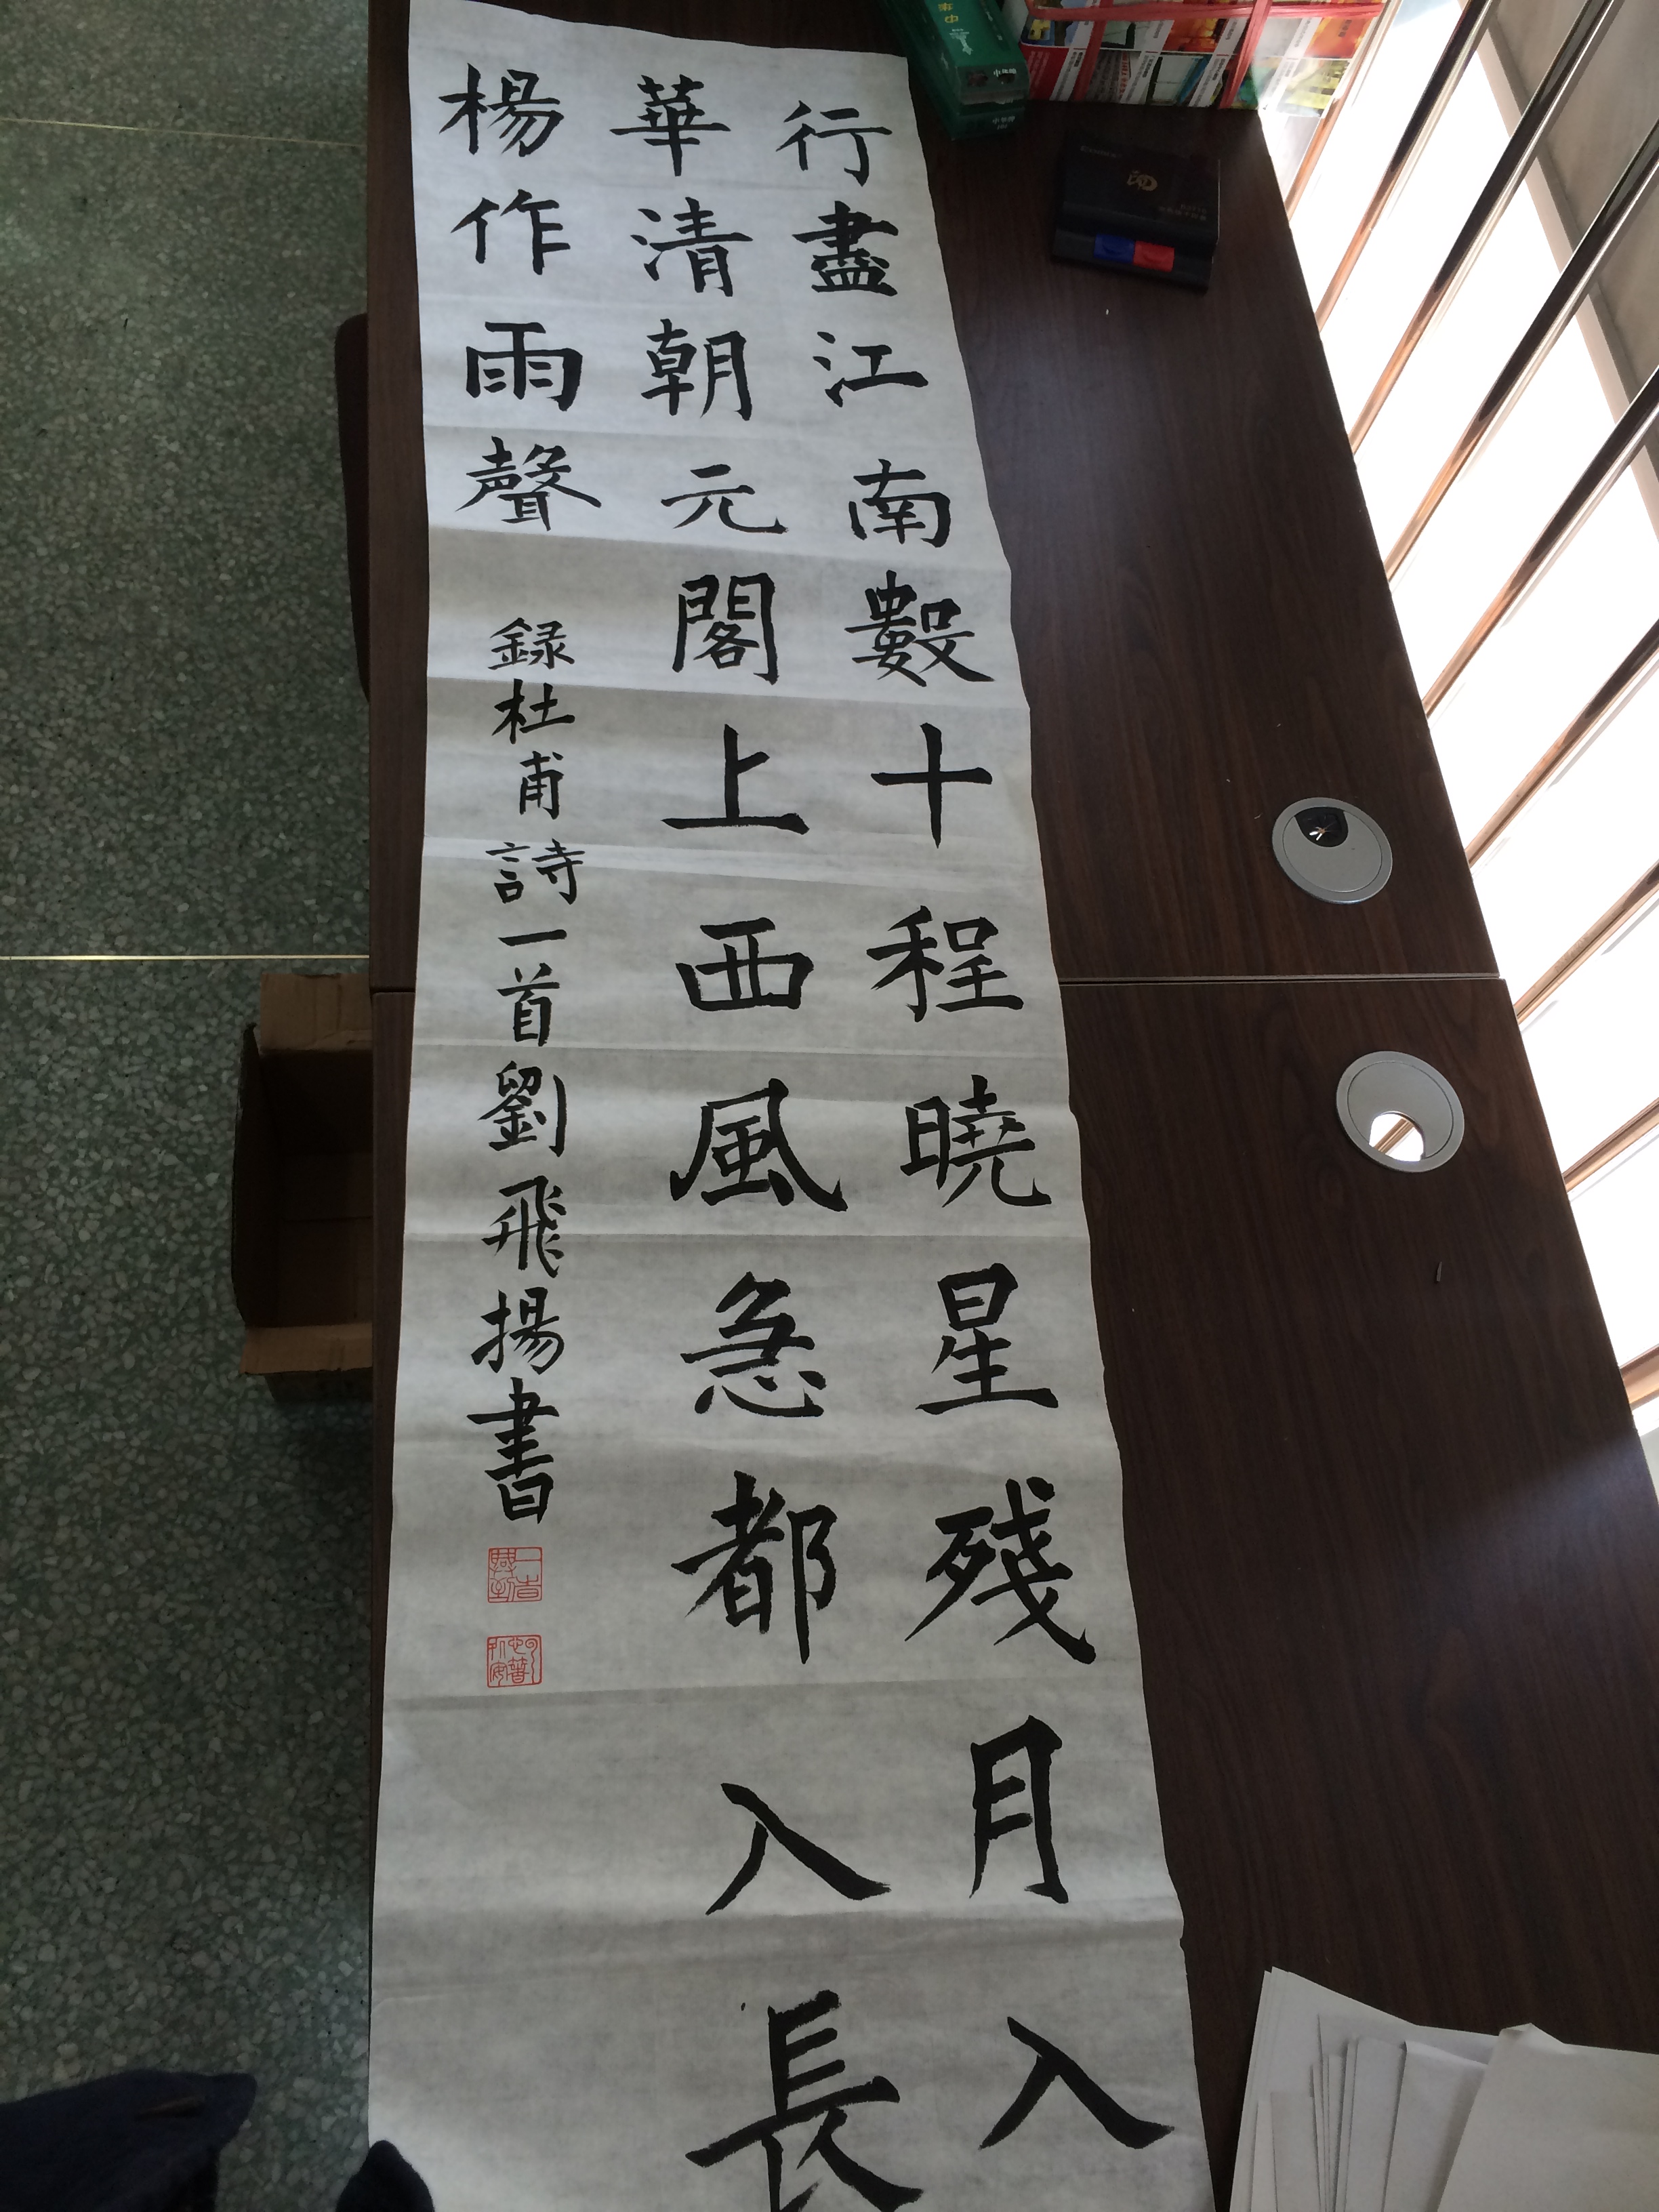 行盡江南數十程曉星殘月入
華清朝元閣上西風急都入長
楊作雨聲
録杜甫詩一首劉飛揚書